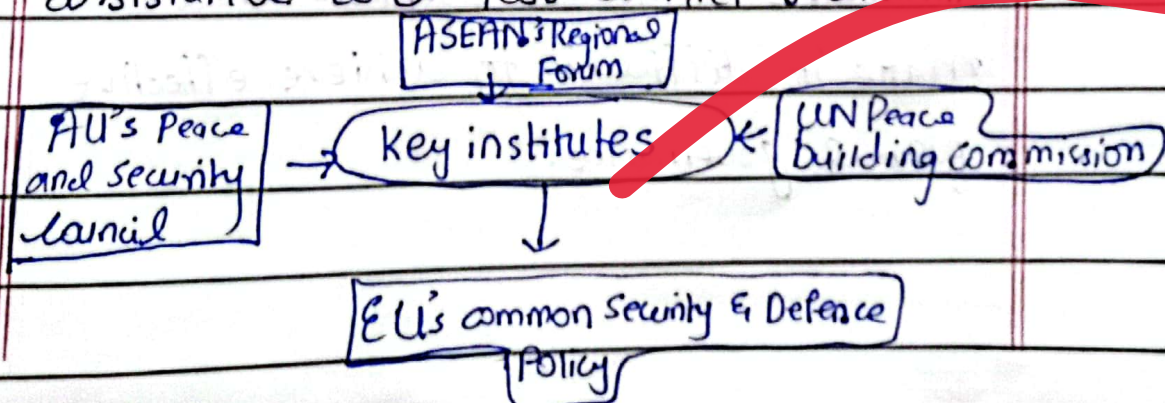 ASEAN's Regional
Forum
AU's Peace
and Security
Council
Key institutes
UN Peace
building commission
EU's common Security & Defence
Policy